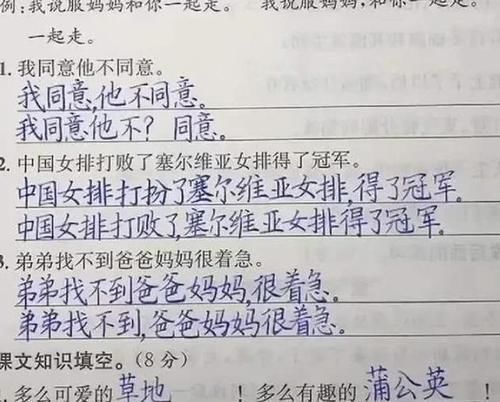 例:我说服妈妈和你一起走。 我说服妈妈,和你一起走。
一起走。
1. 我同意他不同意。
我同意,他不同意。
我同意他不? 同意。
2. 中国女排打败了塞尔维亚女排得了冠军。
中国女排打扮了塞尔维亚女排,得了冠军。
中国女排打败了,塞尔维亚女排得了冠军。
3. 弟弟找不到爸爸妈妈很着急。
弟弟找不到爸爸妈妈,很着急。
弟弟找不到,爸爸妈妈很着急。
课文知识填空。(8分)
1. 多么可爱的草地! 多么有趣的蒲公英!